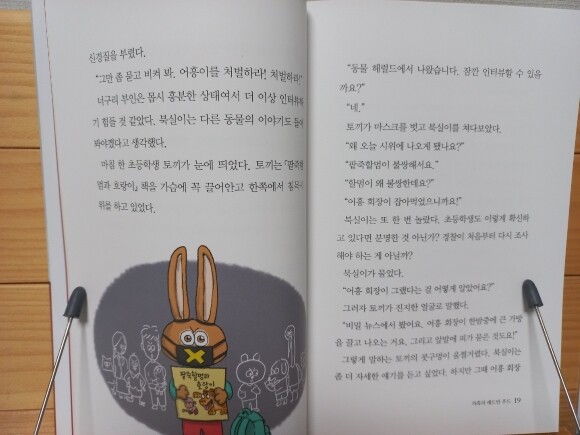 신경질을 부렸다.
"그만 좀 묻고 비켜 봐. 어흥이를 처벌하라! 처벌하라!"
너구리 부인은 몹시 흥분한 상태여서 더 이상 인터뷰하
기 힘들 것 같았다. 북실이는 다른 동물의 이야기도 들어
봐야겠다고 생각했다.
마침 한 초등학생 토끼가 눈에 띄었다. 토끼는 『팥죽할
멈과 호랑이』 책을 가슴에 꼭 끌어안고 한쪽에서 침묵시
위를 하고 있었다.
팥죽할멈과
호랑이
"동물 헤럴드에서 나왔습니다. 잠깐 인터뷰할 수 있을
까요?"
"네."
토끼가 마스크를 벗고 북실이를 쳐다보았다.
"왜 오늘 시위에 나오게 됐나요?"
"팥죽할멈이 불쌍해서요."
"할멈이 왜 불쌍한데요?"
"어흥 회장이 잡아먹었으니까요!"
북실이는 또 한 번 놀랐다. 초등학생도 이렇게 확신하
고 있다면 분명한 것 아닌가? 경찰이 처음부터 다시 조사
해야 하는 게 아닐까?
북실이가 물었다.
"어흥 회장이 그랬다는 걸 어떻게 알았어요?"
그러자 토끼가 진지한 얼굴로 말했다.
"비밀 뉴스에서 봤어요. 어흥 회장이 한밤중에 큰 가방
을 끌고 나오는 거요. 그리고 앞발에 피가 묻은 것도요!"
그렇게 말하는 토끼의 콧구멍이 움찔거렸다. 북실이는
좀 더 자세한 얘기를 듣고 싶었다. 하지만 그때 어흥 회장
19